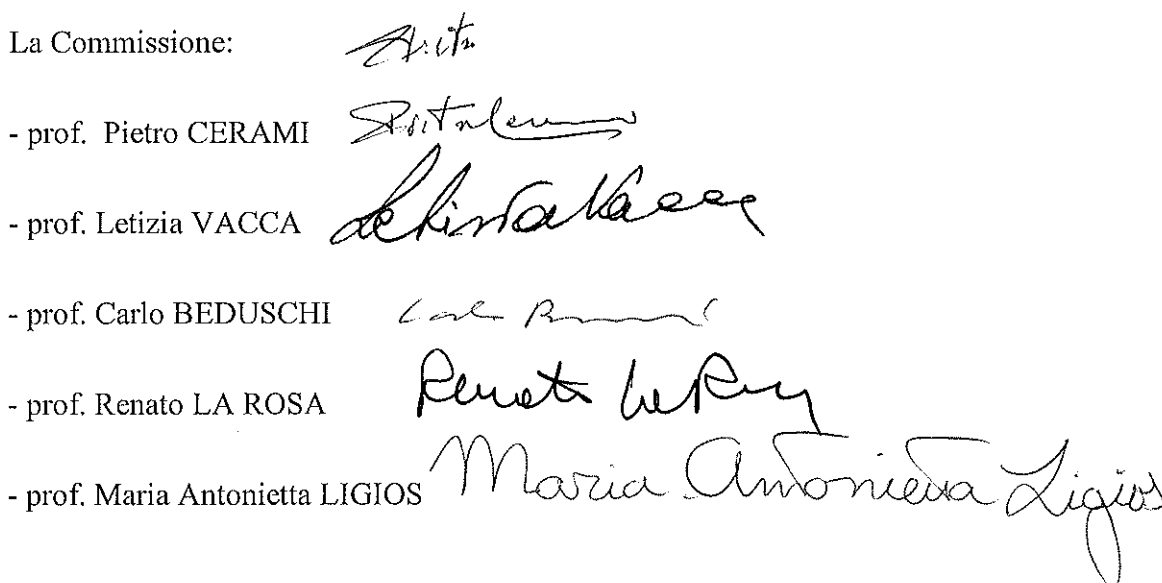 La Commissione:
- prof. Pietro CERAMI
- prof. Letizia VACCA Letizia Vacca
- prof. Carlo BEDUSCHI Carlo
- prof. Renato LA ROSA Renato La Rosa
- prof. Maria Antonietta LIGIOS Maria Antonietta Ligios